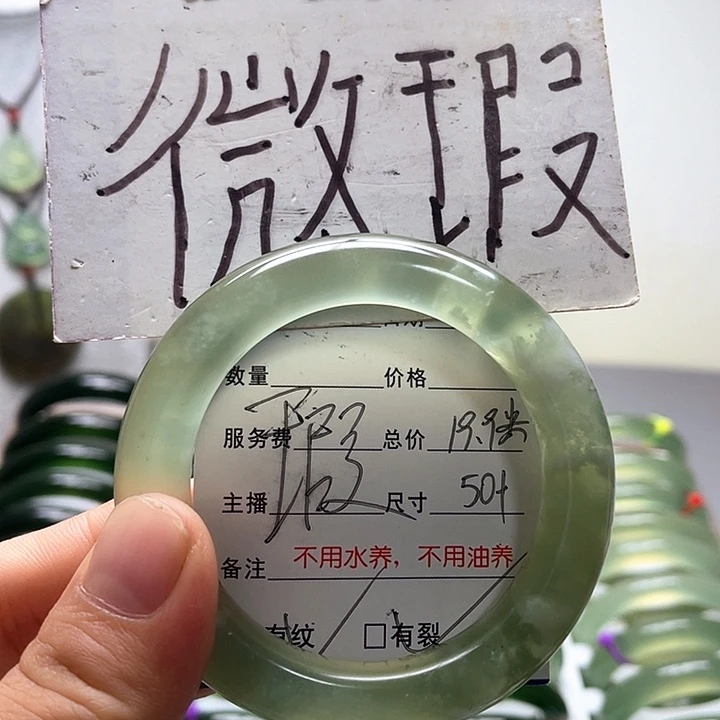 微瑕
数量 价格
服务费 瑕 总价 19.9米
主播 尺寸 50+
备注 不用水养，不用油养
有纹 □有裂